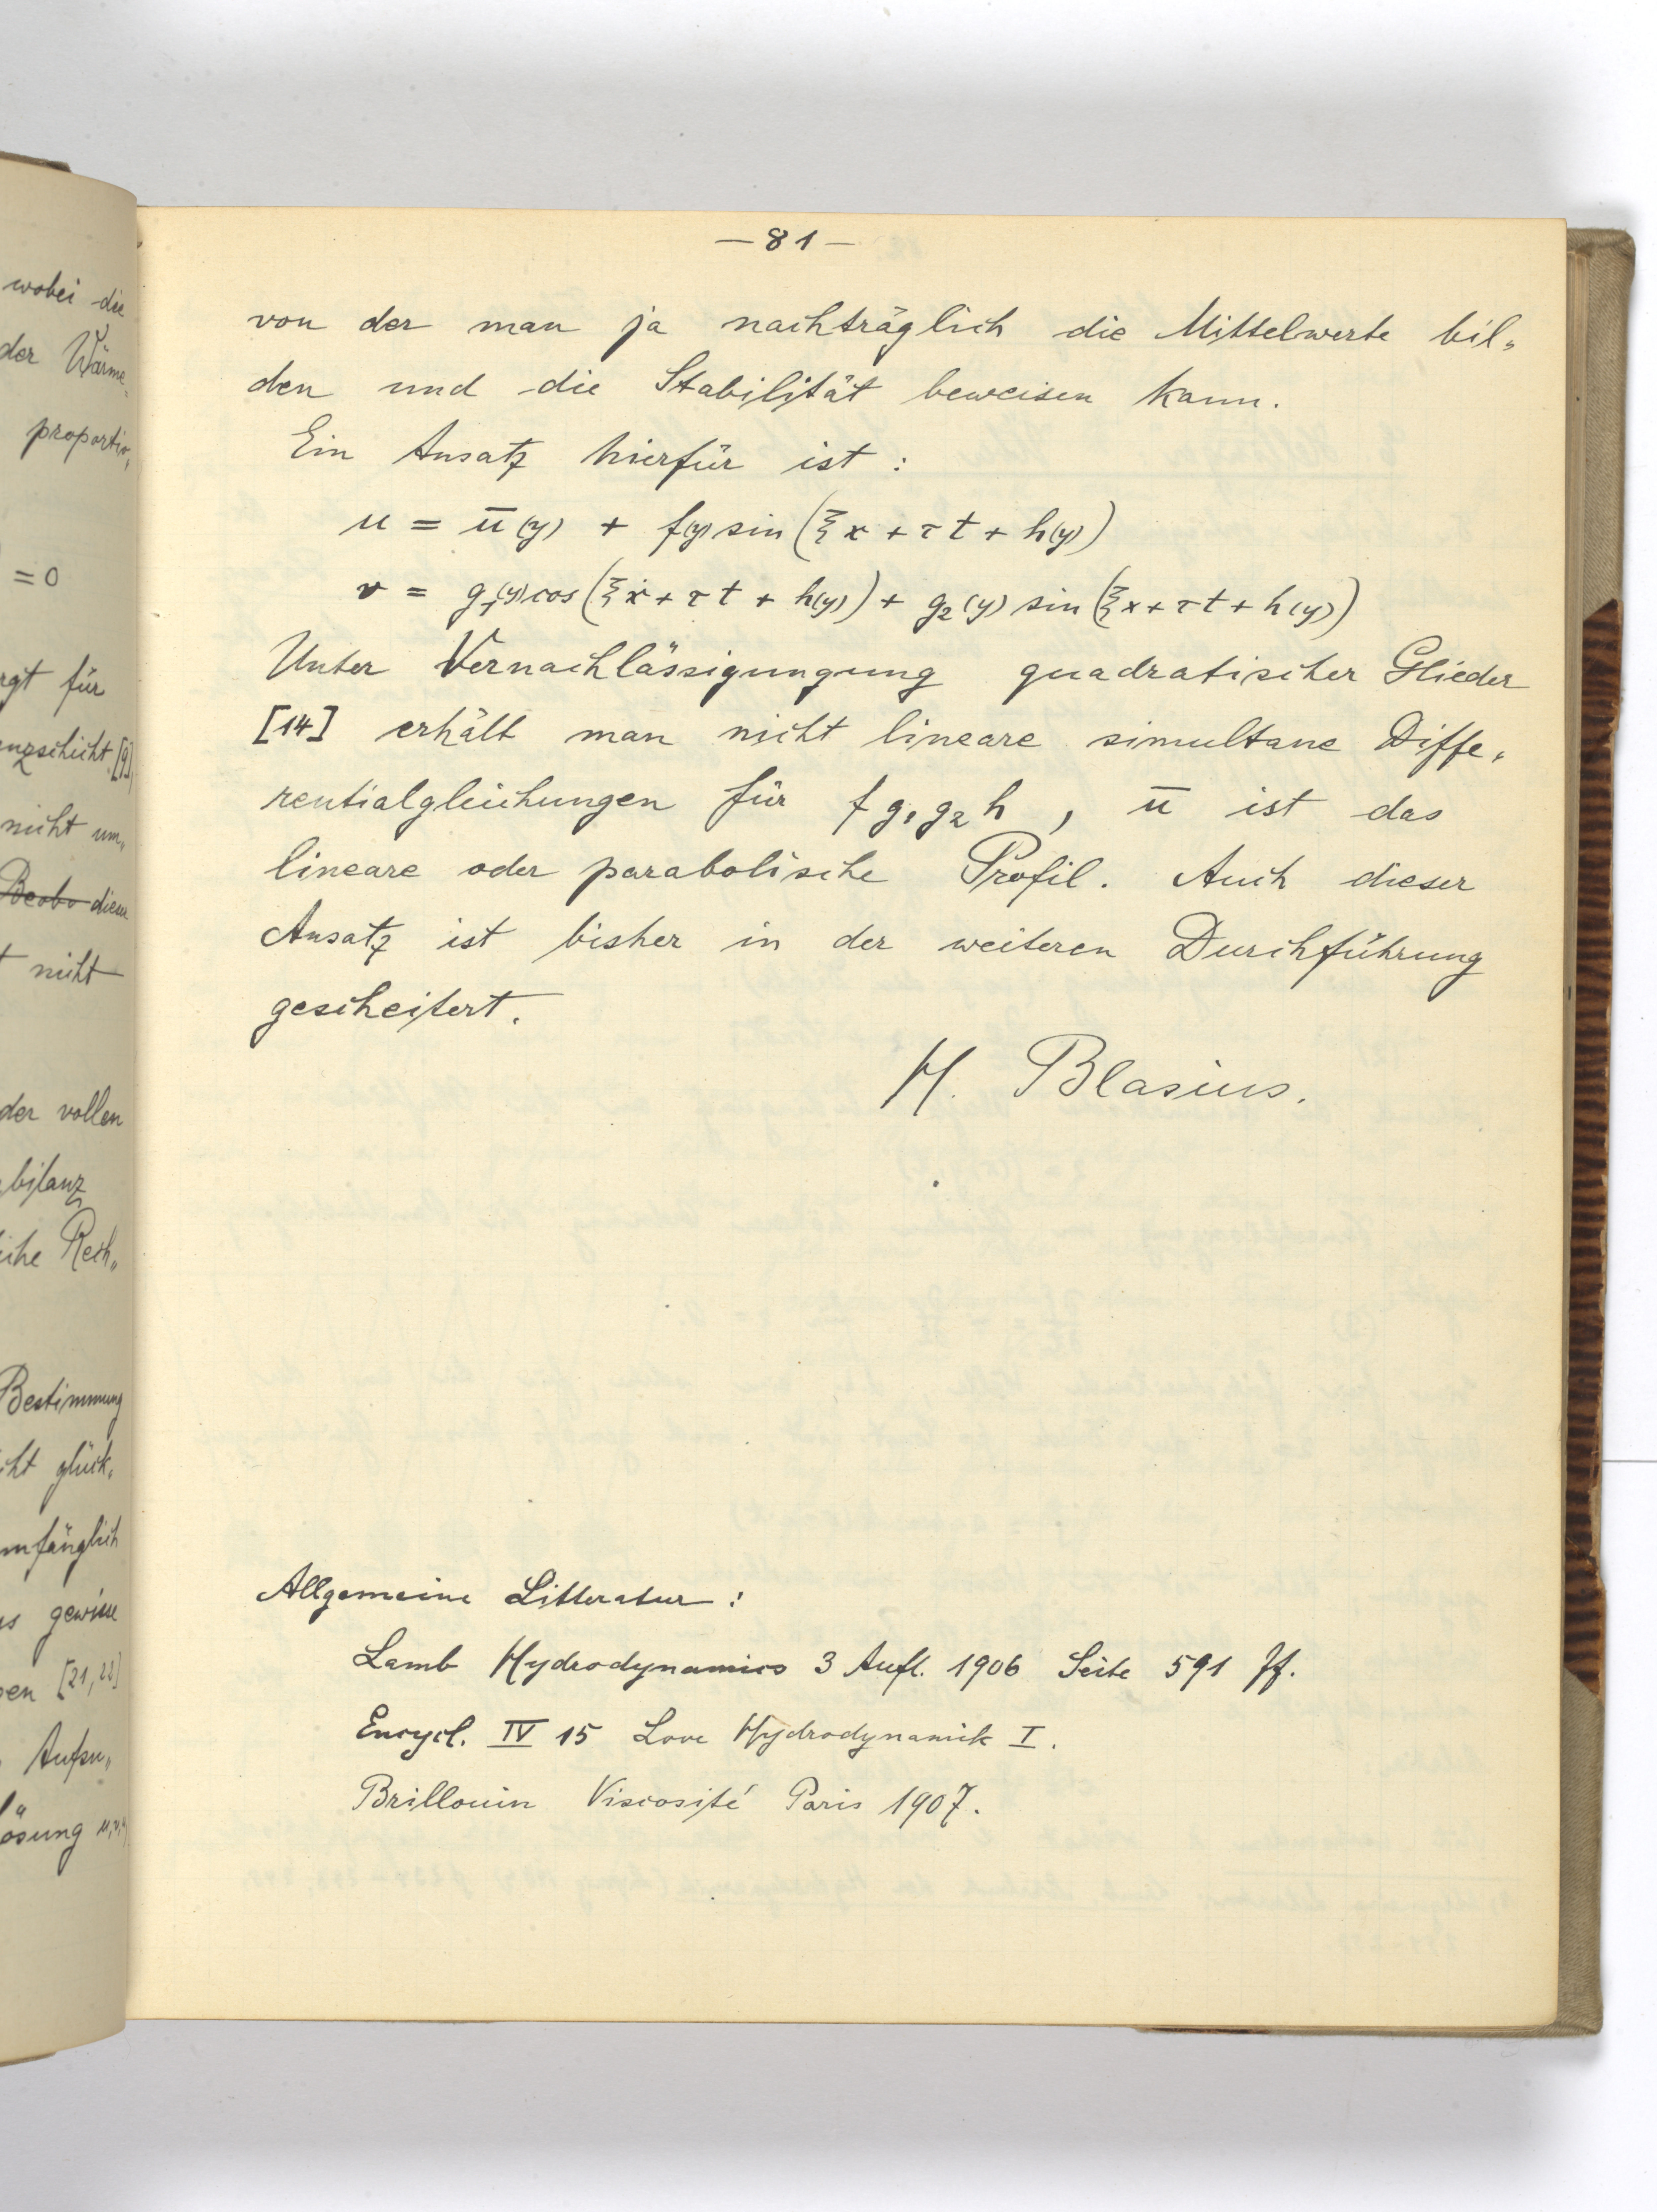 wobei die
der Wärme„
proportio„
= 0
für
[9]
nicht um„
Beobo diese
nicht
der vollen
bilanz
Rech„
Bestimmung
glück„
gewisse
[21, 22]
Aufsu„
— 81 —
von der man ja nachträglich die Mittelwerte bil„
den und die Stabilität beweisen kann.
Ein Ansatz hierfür ist :
u = ū(y) + f(y) sin (ξx + τt + h(y))
v = g₁(y) cos (ξx + τt + h(y)) + g₂(y) sin (ξx + τt + h(y))
Unter Vernachlässigungung quadratischer Glieder
[14] erhält man nicht lineare simultane Diffe„
rentialgleichungen für f g₁ g₂ h , ū ist das
lineare oder parabolische Profil. Auch dieser
Ansatz ist bisher in der weiteren Durchführung
gescheitert.
H. Blasius.
Allgemeine Litteratur :
Lamb Hydrodynamics 3 Aufl. 1906 Seite 591 ff.
Encycl. IV 15 Love Hydrodynamik I.
Brillouin Viscosité Paris 1907.